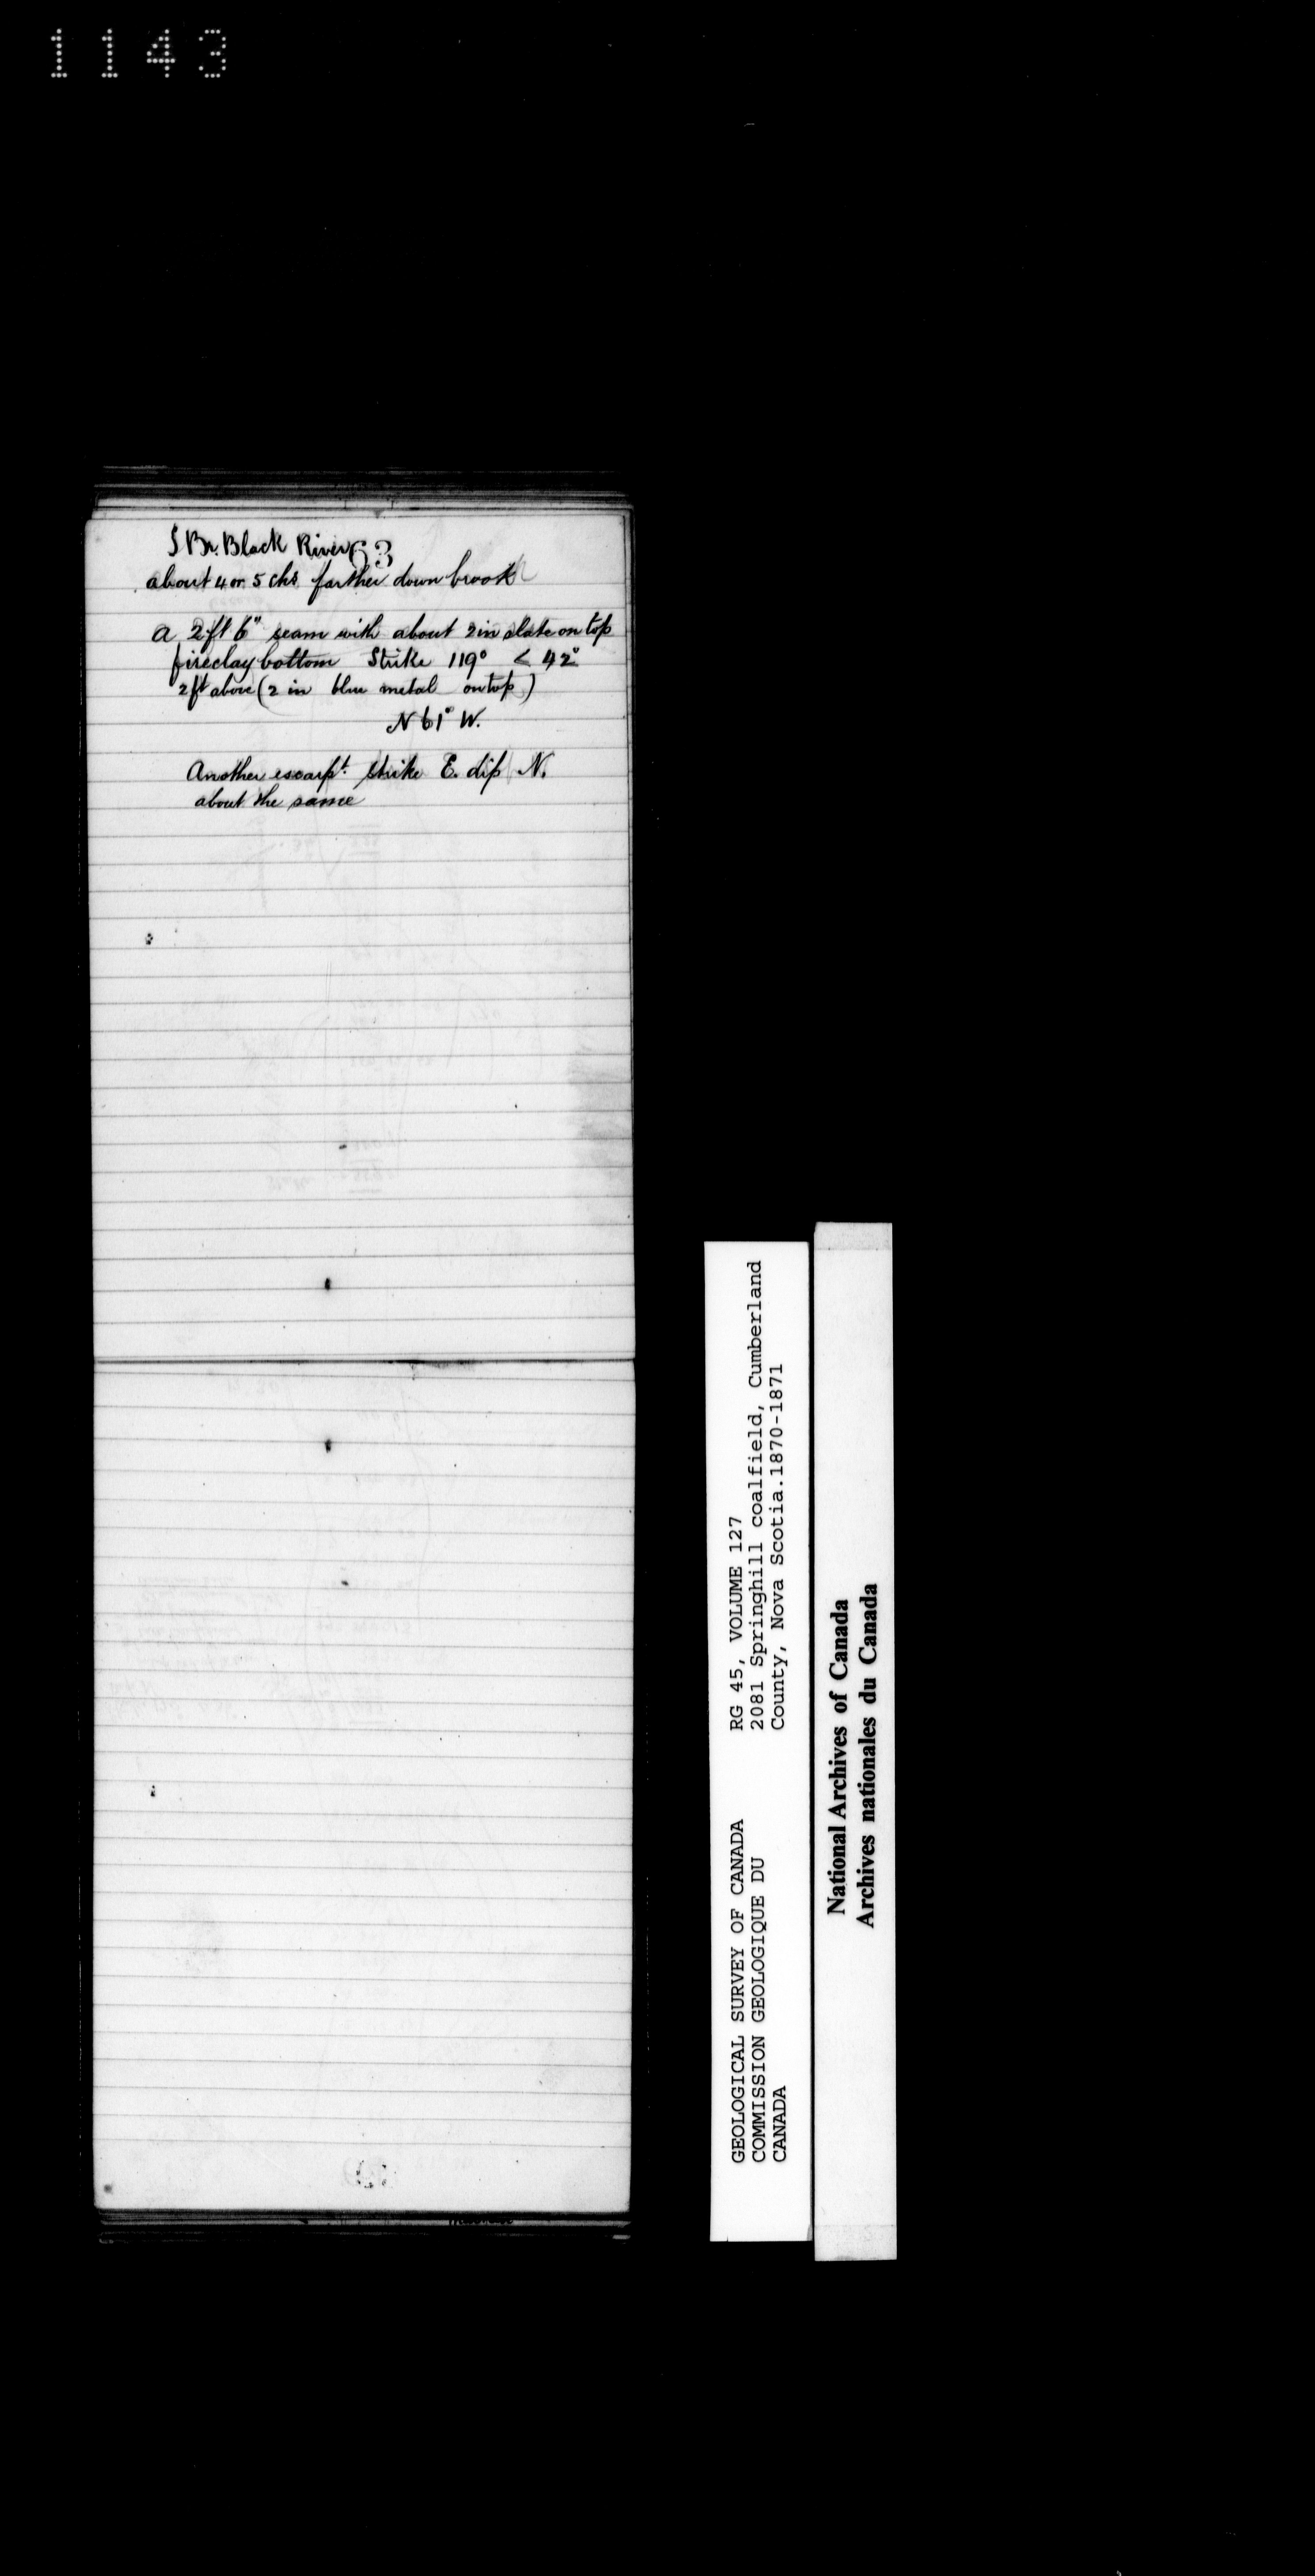 1143
S Br. Black River 63
about 4 or 5 chs farther down brook
a 2 ft 6" seam with about 2 in slate on top
fireclay bottom Strike 119° < 42°
2 ft above (2 in blue metal on top)
N 61° W.
Another escarpt. strike E. dip N.
about the same
GEOLOGICAL SURVEY OF CANADA RG 45, VOLUME 127
COMMISSION GEOLOGIQUE DU 2081 Springhill coalfield, Cumberland
CANADA County, Nova Scotia.1870-1871
National Archives of Canada
Archives nationales du Canada